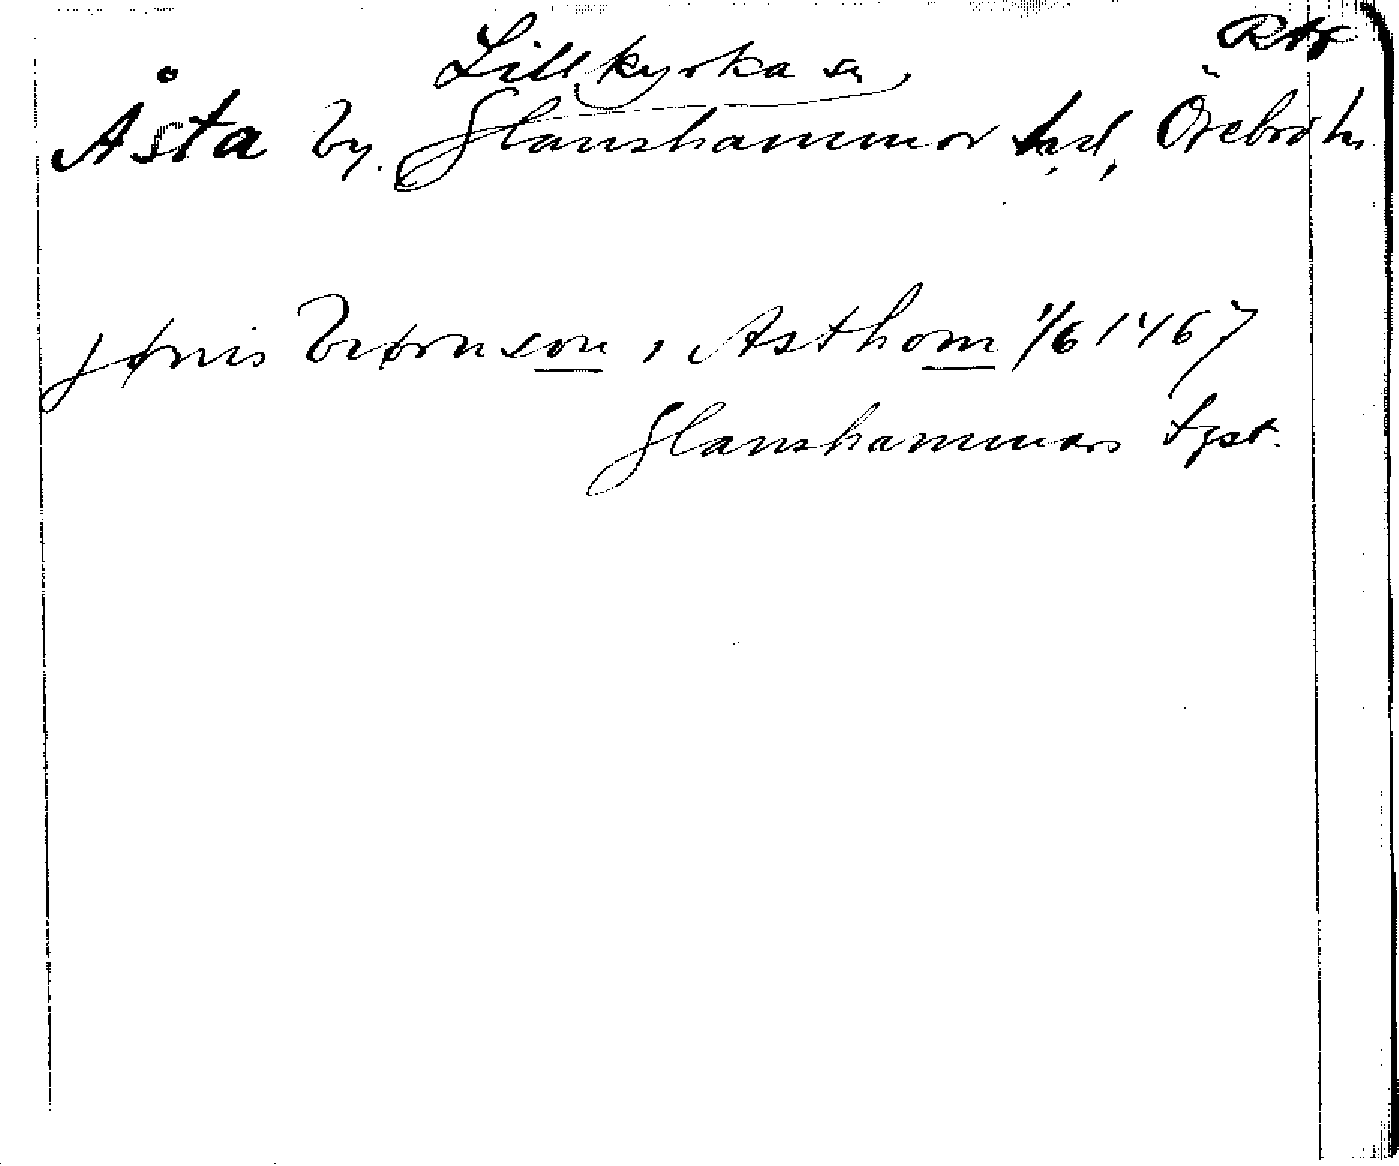 Lillkyrka sn,
Åsta by. Glanshammar hd, Örebro län
jønis biørnson, i Asthom 1/6 1467
Glanshammars tgst.